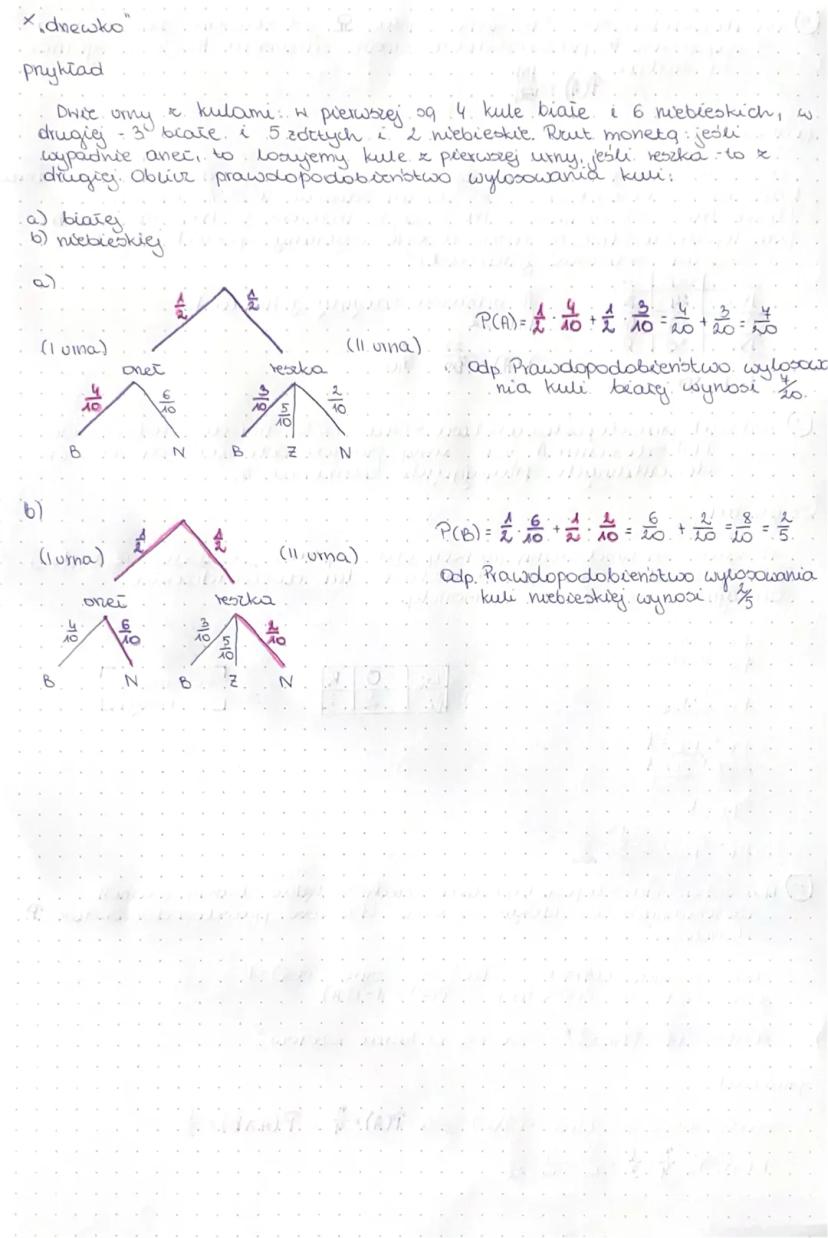 x „drzewko"
przykład
Dwie urny z kulami: w pierwszej są 4 kule białe i 6 niebieskich, w
drugiej - 3 białe i 5 żółtych i 2 niebieskie. Rzut monetą: jeśli
wypadnie orzeł, to losujemy kule z pierwszej urny, jeśli reszka - to z
drugiej. Oblicz prawdopodobieństwo wylosowania kuli:
a) białej
b) niebieskiej
a)
1/2 1/2
(I urna) (II urna)
orzeł reszka
4/10 6/10 3/10 5/10 2/10
B N B Ż N
P(A) = 1/2 · 4/10 + 1/2 · 3/10 = 4/20 + 3/20 = 7/20
Odp. Prawdopodobieństwo wylosowa
nia kuli białej wynosi 7/20.
b)
1/2 1/2
(I urna) (II urna)
orzeł reszka
4/10 6/10 3/10 5/10 2/10
B N B Ż N
P(B) = 1/2 · 6/10 + 1/2 · 2/10 = 6/20 + 2/20 = 8/20 = 2/5
Odp. Prawdopodobieństwo wylosowania
kuli niebieskiej wynosi 2/5